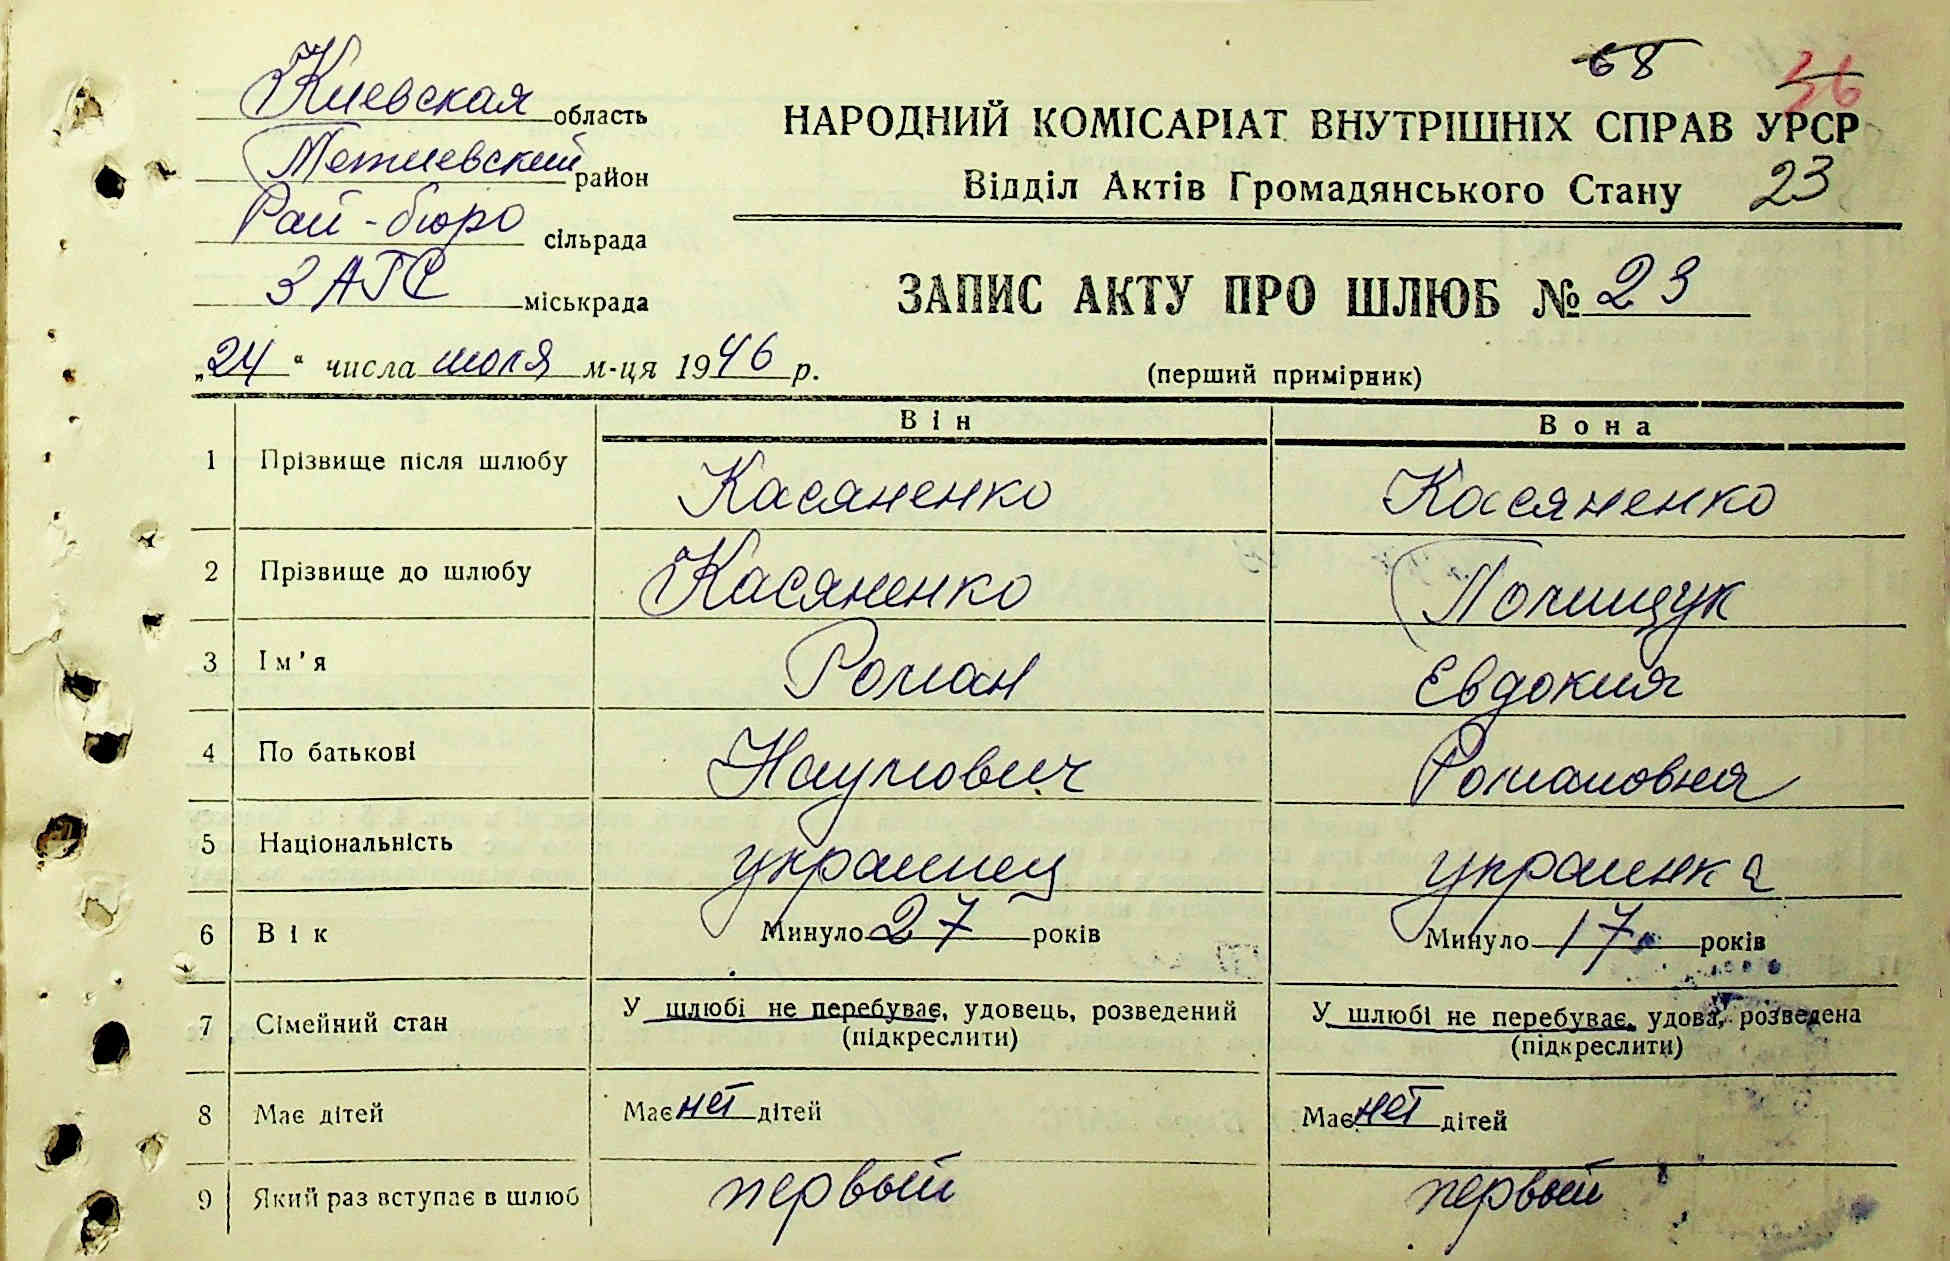 68
36
Киевская область
НАРОДНИЙ КОМІСАРІАТ ВНУТРІШНІХ СПРАВ УРСР
Тетиевский район
Відділ Актів Громадянського Стану 23
Рай-бюро сільрада
ЗАГС міськрада
ЗАПИС АКТУ ПРО ШЛЮБ № 23
„24“ числа июля м-ця 1946 р.
(перший примірник)
Він Вона
1 Прізвище після шлюбу Касяненко Касяненко
2 Прізвище до шлюбу Касяненко Полищук
3 Ім'я Роман Евдокия
4 По батькові Наумович Романовна
5 Національність украинец украинка
6 Вік Минуло 27 років Минуло 17 років
7 Сімейний стан У шлюбі не перебуває, удовець, розведений У шлюбі не перебуває, удова, розведена
(підкреслити) (підкреслити)
8 Має дітей Має нет дітей Має нет дітей
9 Який раз вступає в шлюб первый первый